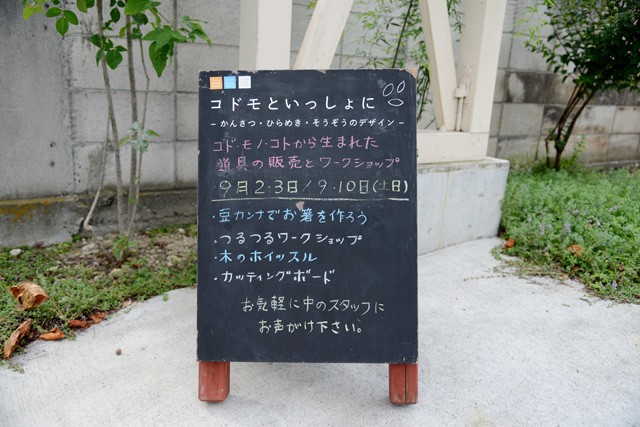 コドモといっしょに
- かんさつ・ひらめき・そうぞうのデザイン -
コド・モノ・コトから生まれた
道具の販売とワークショップ
9月2・3日/9・10日(土日)
・豆カンナでお箸を作ろう
・つるつるワークショップ
・木のホイッスル
・カッティングボード
お気軽に中のスタッフに
お声がけ下さい。